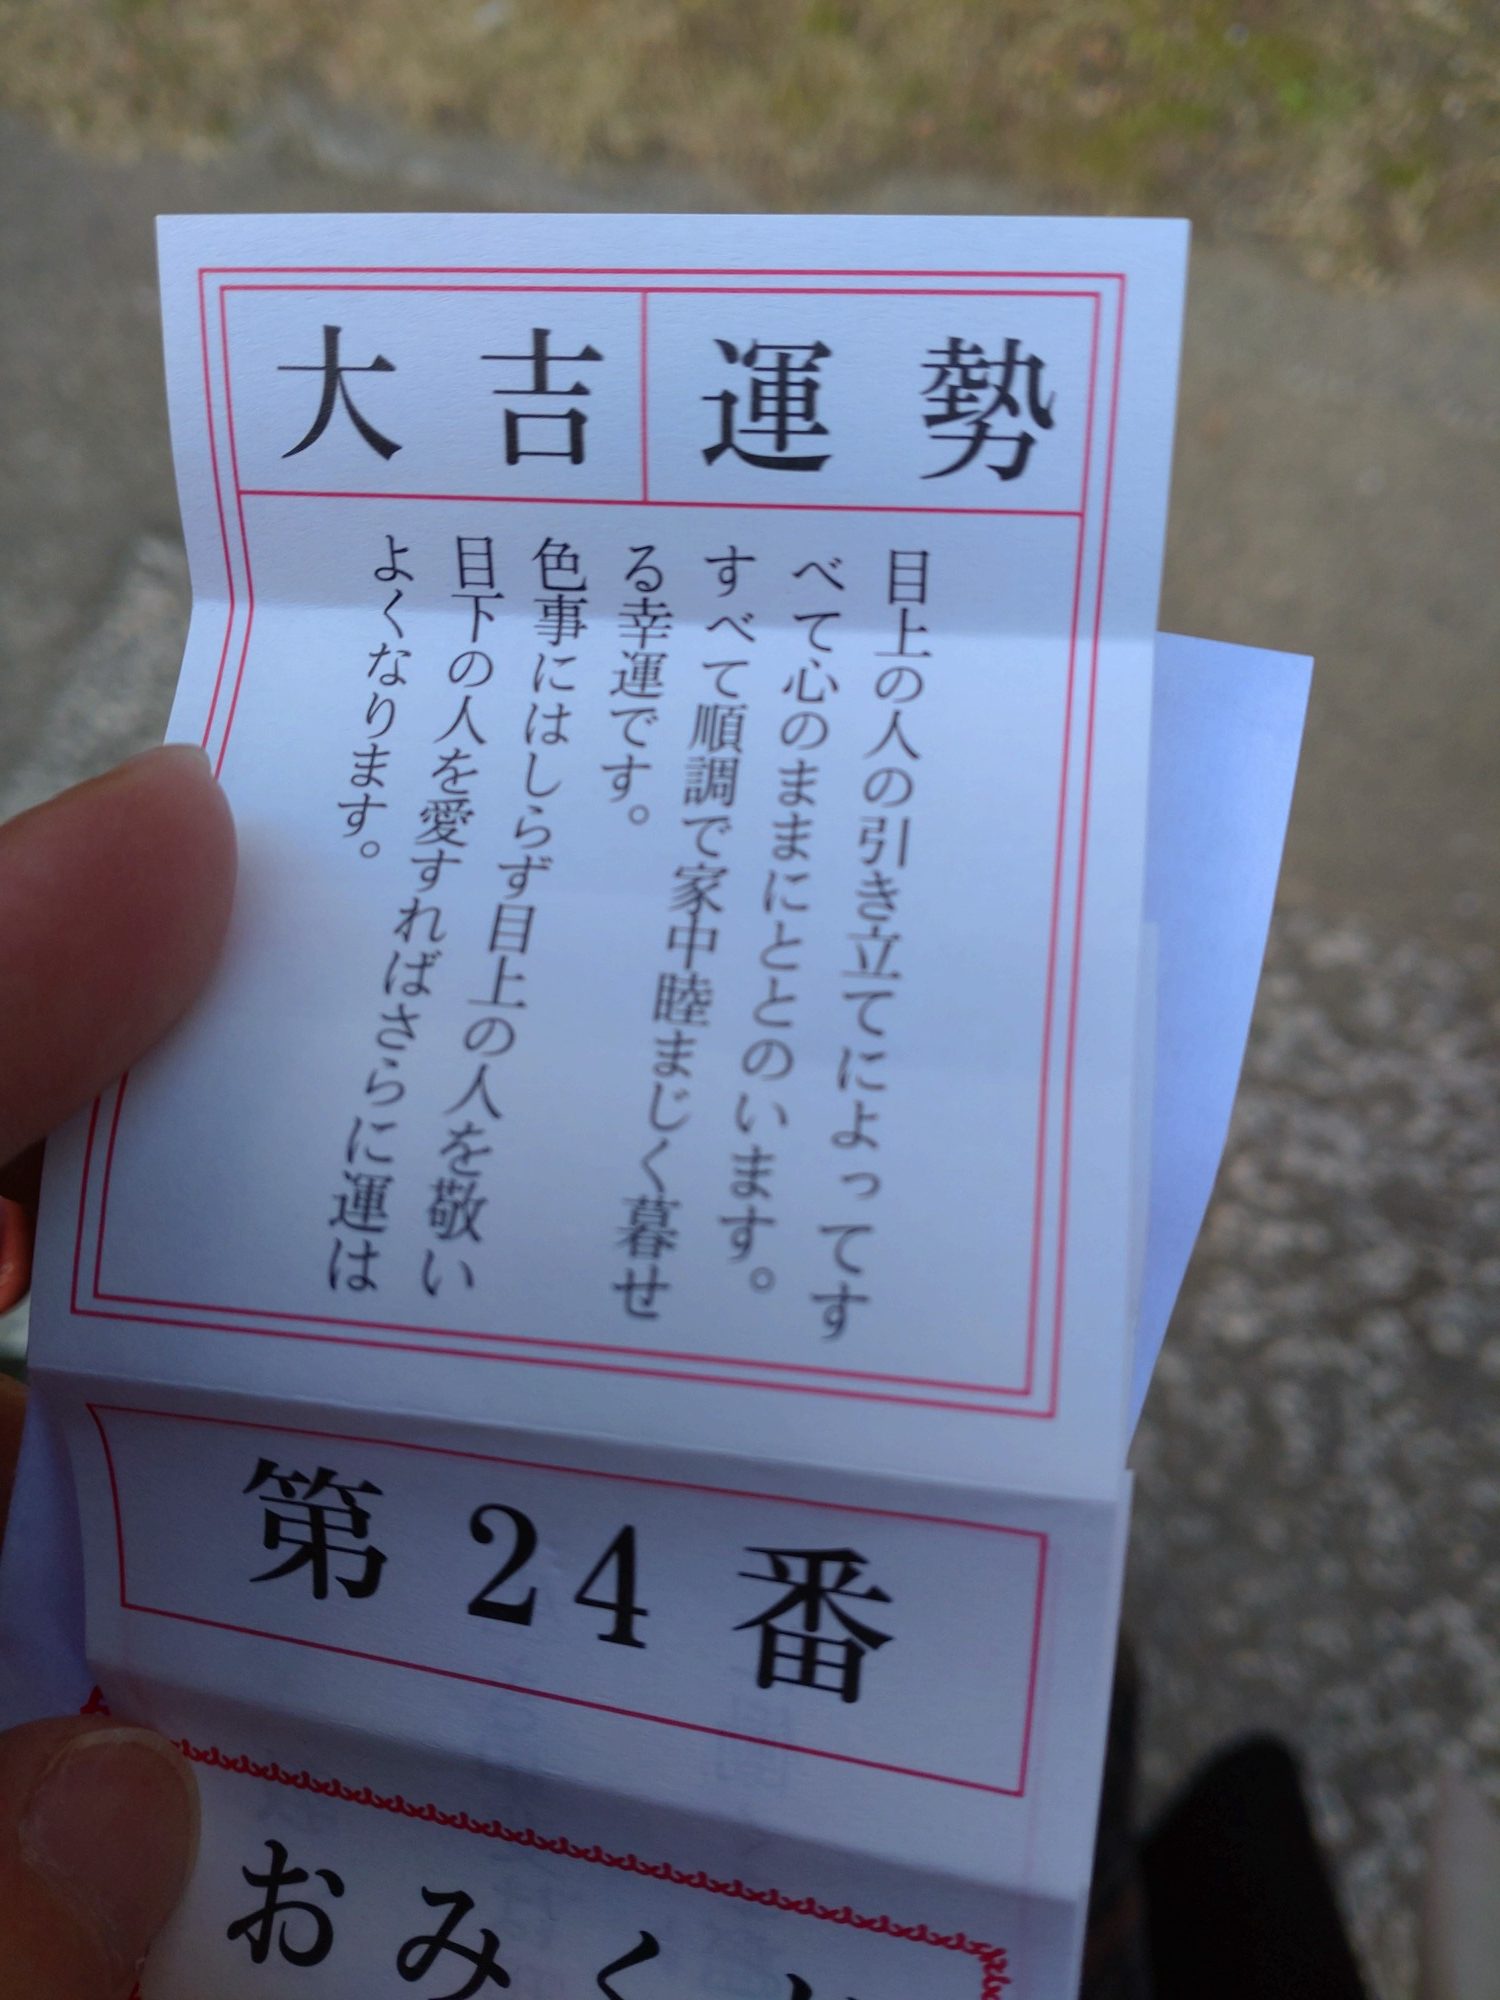 大吉 運勢
目上の人の引き立てによってす
べて心のままにととのいます。
すべて順調で家中睦まじく暮せ
る幸運です。
色事にはしらず目上の人を敬い
目下の人を愛すればさらに運は
よくなります。
第24番
おみく